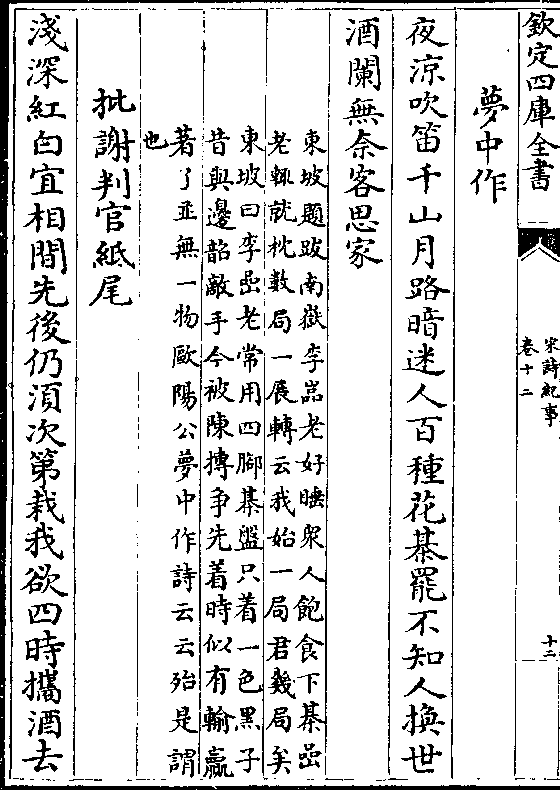 欽定四庫全書
宋詩紀事
卷十二
十二
夢中作
夜涼吹笛千山月路暗迷人百種花棊罷不知人換世
酒闌無奈客思家
東坡題跋南嶽李嵓老好睡衆人飽食下棊嵓
老輒就枕數局一展轉云我始一局君幾局矣
東坡曰李嵓老常用四脚棊盤只着一色黑子
昔與邊韶敵手今被陳摶争先着時似有輸贏
著了並無一物歐陽公夢中作詩云云殆是謂
也
批謝判官紙尾
淺深紅白宜相間先後仍湏次第栽我欲四時攜酒去